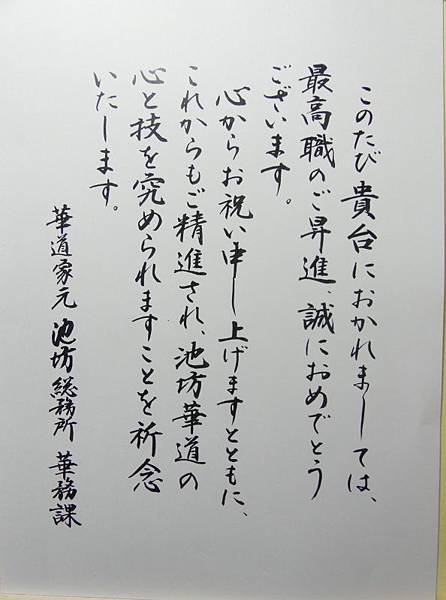 このたび貴台におかれましては、
最高職のご昇進、誠におめでとう
ございます。
心からお祝い申し上げますとともに、
これからもご精進され、池坊華道の
心と技を究められますことを祈念
いたします。
華道家元 池坊総務所 華務課